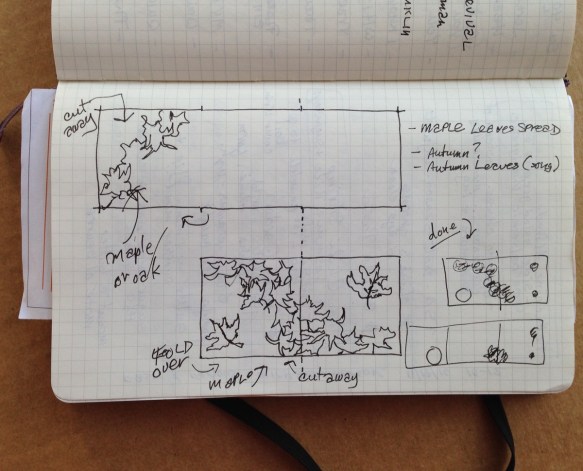 EVIVAL
man
NKLIN
cut
away
- MAPLE LEAVES SPREAD
- Autumn?
- Autumn Leaves (song)
maple
or oak
done
FOLD
over
maple
cut away